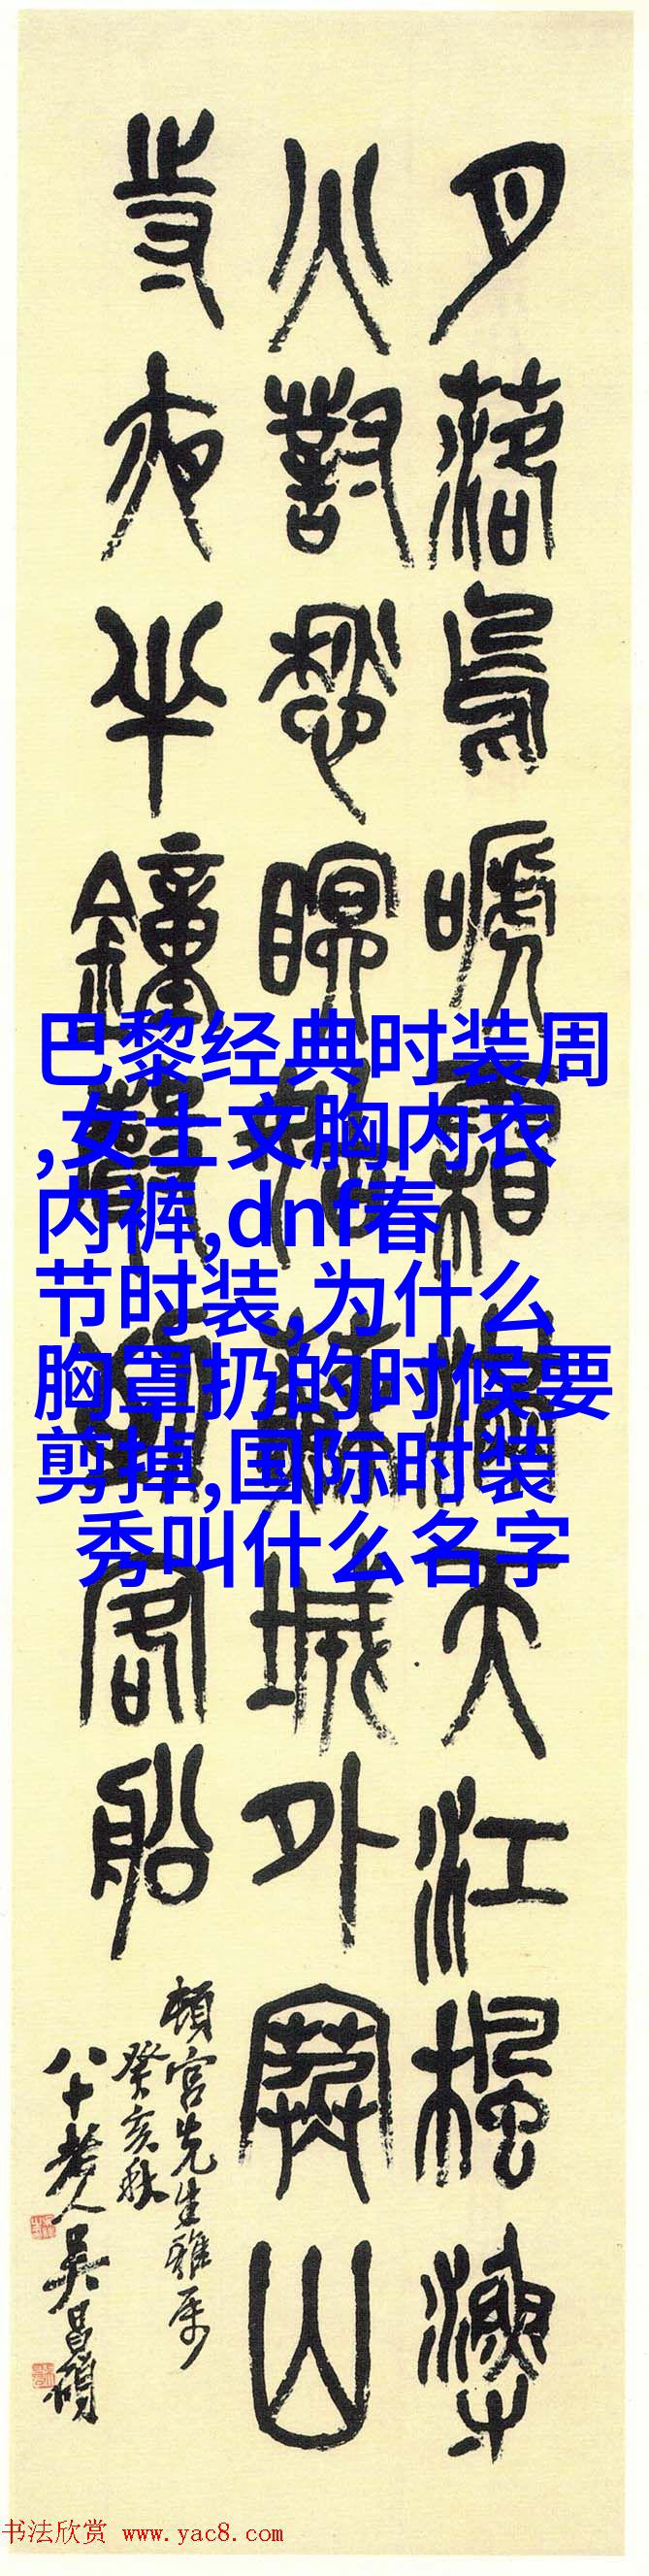 月落烏嗁霜滿天江楓漁
火對愁眠姑蘇城外寒山
寺夜半鐘聲到客船
頓宮先生雅屬
癸亥秋
八十老人吳昌碩
巴黎经典时装周
,女士文胸内衣
内裤,dnf春
节时装,为什么
胸罩扔的时候要
剪掉,国际时装
秀叫什么名字
书法欣赏 www.yac8.com